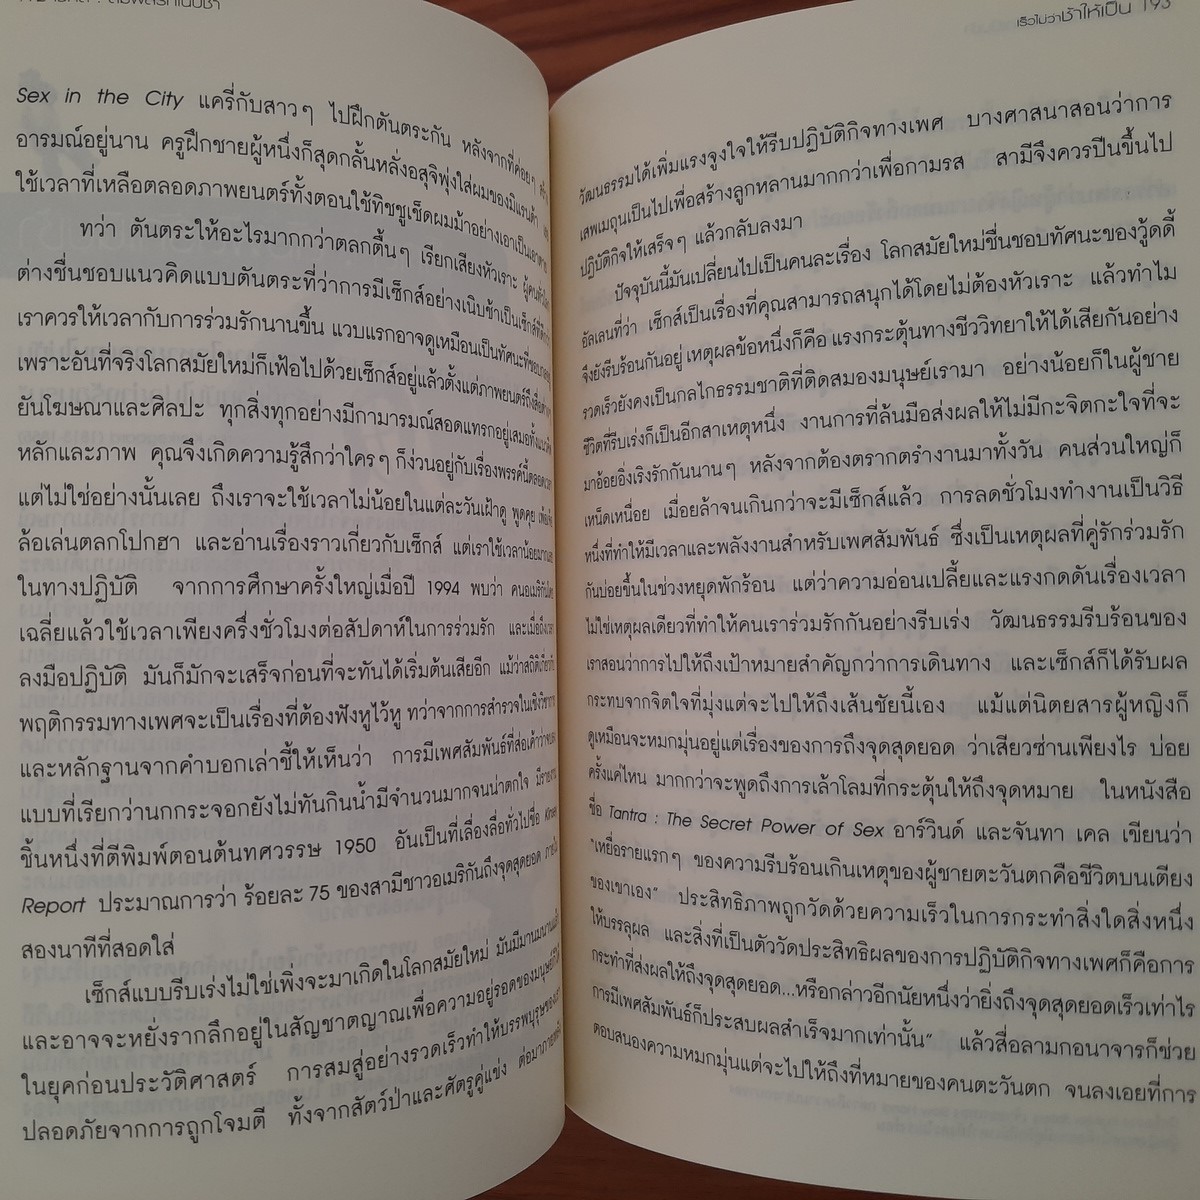 Sex in the City แครี่กับสาวๆ ไปฝึกตันตระกัน หลังจากที่ค่อยๆ สร้าง
อารมณ์อยู่นาน ครูฝึกชายผู้หนึ่งก็สุดกลั้นหลั่งอสุจิพุ่งใส่ผมของมิแรนด้า
ใช้เวลาที่เหลือตลอดภาพยนตร์ทั้งตอนใช้ทิชชูเช็ดผมม้าอย่างเอาเป็นเอาตาย
ทว่า ตันตระให้อะไรมากกว่าตลกตื้นๆ เรียกเสียงหัวเราะ
ต่างชื่นชอบแนวคิดแบบตันตระที่ว่าการมีเซ็กส์อย่างเนิบช้าเป็นเซ็กส์ที่ดีกว่า
เราควรให้เวลากับการร่วมรักนานขึ้น แวบแรกอาจดูเหมือนเป็นทัศนะที่ชอบกลอยู่
เพราะอันที่จริงโลกสมัยใหม่ก็เฟ้อไปด้วยเซ็กส์อยู่แล้วตั้งแต่ภาพยนตร์ถึงสื่อ
ยันโฆษณาและศิลปะ ทุกสิ่งทุกอย่างมีกามารมณ์สอดแทรกอยู่เสมอทั้งแนวคิด
หลักและภาพ คุณจึงเกิดความรู้สึกว่าใครๆ ก็ง่วนอยู่กับเรื่องพรรค์นี้ตลอดเวลา
แต่ไม่ใช่อย่างนั้นเลย ถึงเราจะใช้เวลาไม่น้อยในแต่ละวันเฝ้าดู พูดคุย เพ้อฝัน
ล้อเล่นตลกโปกฮา และอ่านเรื่องราวเกี่ยวกับเซ็กส์ แต่เราใช้เวลาน้อยมาก
ในทางปฏิบัติ จากการศึกษาครั้งใหญ่เมื่อปี 1994 พบว่า คนอเมริกันโดย
เฉลี่ยแล้วใช้เวลาเพียงครึ่งชั่วโมงต่อสัปดาห์ในการร่วมรัก และเมื่อถึงเวลา
ลงมือปฏิบัติ มันก็มักจะเสร็จก่อนที่จะทันได้เริ่มต้นเสียอีก แม้ว่าสถิติเกี่ยวกับ
พฤติกรรมทางเพศจะเป็นเรื่องที่ต้องฟังหูไว้หู ทว่าจากการสำรวจในเชิงวิชาการ
และหลักฐานจากคำบอกเล่าชี้ให้เห็นว่า การมีเพศสัมพันธ์ที่ส่อเค้าว่าจบลง
แบบที่เรียกว่านกกระจอกยังไม่ทันกินน้ำมีจำนวนมากจนน่าตกใจ มีรายงาน
ชิ้นหนึ่งที่ตีพิมพ์ตอนต้นทศวรรษ 1950 อันเป็นที่เลื่องลือทั่วไปชื่อ Kinsey
Report ประมาณการว่า ร้อยละ 75 ของสามีชาวอเมริกันถึงจุดสุดยอด ภายใน
สองนาทีที่สอดใส่
เซ็กส์แบบรีบเร่งไม่ใช่เพิ่งจะมาเกิดในโลกสมัยใหม่ มันมีมานมนานแล้ว
และอาจจะหยั่งรากลึกอยู่ในสัญชาตญาณเพื่อความอยู่รอดของมนุษย์ก็ได้
ในยุคก่อนประวัติศาสตร์ การสมสู่อย่างรวดเร็วทำให้บรรพบุรุษของเรา
ปลอดภัยจากการถูกโจมตี ทั้งจากสัตว์ป่าและศัตรูคู่แข่ง ต่อมาภายหลัง
เร็วไม่ว่าช้าให้เป็น 193
วัฒนธรรมได้เพิ่มแรงจูงใจให้รีบปฏิบัติกิจทางเพศ บางศาสนาสอนว่าการ
เสพเมถุนเป็นไปเพื่อสร้างลูกหลานมากกว่าเพื่อกามรส สามีจึงควรปีนขึ้นไป
ปฏิบัติกิจให้เสร็จๆ แล้วกลับลงมา
ปัจจุบันนี้มันเปลี่ยนไปเป็นคนละเรื่อง โลกสมัยใหม่ชื่นชอบทัศนะของวู้ดดี้
อัลเลนที่ว่า เซ็กส์เป็นเรื่องที่คุณสามารถสนุกได้โดยไม่ต้องหัวเราะ แล้วทำไม
จึงยังรีบร้อนกันอยู่ เหตุผลข้อหนึ่งก็คือ แรงกระตุ้นทางชีววิทยาให้ได้เสียกันอย่าง
รวดเร็วยังคงเป็นกลไกธรรมชาติที่ติดสมองมนุษย์เรามา อย่างน้อยก็ในผู้ชาย
ชีวิตที่รีบเร่งก็เป็นอีกสาเหตุหนึ่ง งานการที่ล้นมือส่งผลให้ไม่มีกะจิตกะใจที่จะ
มาอ้อยอิ่งเริงรักกันนานๆ หลังจากต้องตรากตรำงานมาทั้งวัน คนส่วนใหญ่ก็
เหน็ดเหนื่อย เมื่อยล้าจนเกินกว่าจะมีเซ็กส์แล้ว การลดชั่วโมงทำงานเป็นวิธี
หนึ่งที่ทำให้มีเวลาและพลังงานสำหรับเพศสัมพันธ์ ซึ่งเป็นเหตุผลที่คู่รักร่วมรัก
กันบ่อยขึ้นในช่วงหยุดพักร้อน แต่ว่าความอ่อนเปลี้ยและแรงกดดันเรื่องเวลา
ไม่ใช่เหตุผลเดียวที่ทำให้คนเราร่วมรักกันอย่างรีบเร่ง วัฒนธรรมรีบร้อนของ
เราสอนว่าการไปให้ถึงเป้าหมายสำคัญกว่าการเดินทาง และเซ็กส์ก็ได้รับผล
กระทบจากจิตใจที่มุ่งแต่จะไปให้ถึงเส้นชัยนี้เอง แม้แต่นิตยสารผู้หญิงก็
ดูเหมือนจะหมกมุ่นอยู่แต่เรื่องของการถึงจุดสุดยอด ว่าเสียวซ่านเพียงไร บ่อย
ครั้งแค่ไหน มากกว่าจะพูดถึงการเล้าโลมที่กระตุ้นให้ถึงจุดหมาย ในหนังสือ
ชื่อ Tantra : The Secret Power of Sex อาร์วินด์ และจันทา เคล เขียนว่า
"เหยื่อรายแรกๆ ของความรีบร้อนเกินเหตุของผู้ชายตะวันตกคือชีวิตบนเตียง
ของเขาเอง" ประสิทธิภาพถูกวัดด้วยความเร็วในการกระทำสิ่งใดสิ่งหนึ่ง
ให้บรรลุผล และสิ่งที่เป็นตัววัดประสิทธิผลของการปฏิบัติกิจทางเพศก็คือการ
กระทำที่ส่งผลให้ถึงจุดสุดยอด...หรือกล่าวอีกนัยหนึ่งว่ายิ่งถึงจุดสุดยอดเร็วเท่าไร
การมีเพศสัมพันธ์ก็ประสบผลสำเร็จมากเท่านั้น" แล้วสื่อลามกอนาจารก็ช่วย
ตอบสนองความหมกมุ่นแต่จะไปให้ถึงที่หมายของคนตะวันตก จนลงเอยที่การ